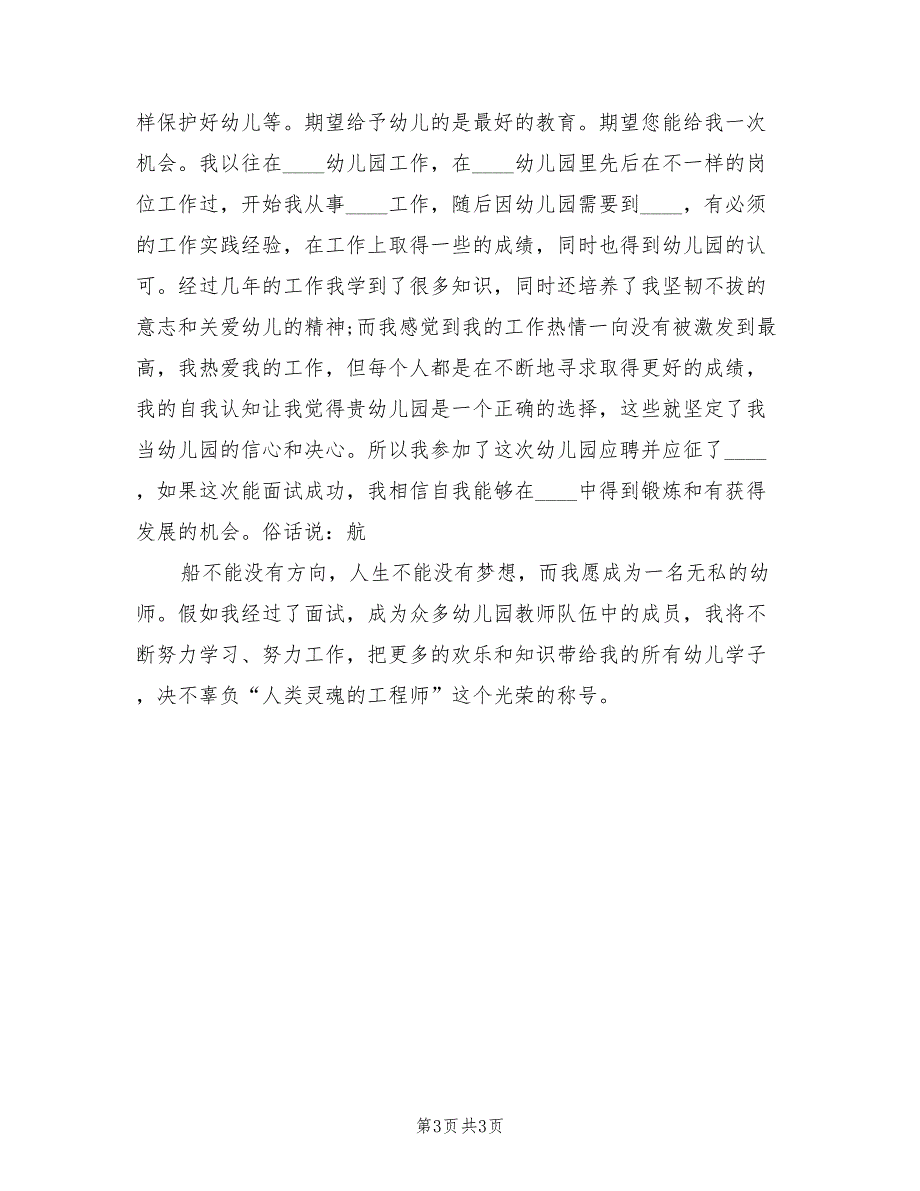 样保护好幼儿等。期望给予幼儿的是最好的教育。期望您能给我一次
机会。我以往在____幼儿园工作，在____幼儿园里先后在不一样的岗
位工作过，开始我从事____工作，随后因幼儿园需要到____，有必须
的工作实践经验，在工作上取得一些的成绩，同时也得到幼儿园的认
可。经过几年的工作我学到了很多知识，同时还培养了我坚韧不拔的
意志和关爱幼儿的精神;而我感觉到我的工作热情一向没有被激发到最
高，我热爱我的工作，但每个人都是在不断地寻求取得更好的成绩，
我的自我认知让我觉得贵幼儿园是一个正确的选择，这些就坚定了我
当幼儿园的信心和决心。所以我参加了这次幼儿园应聘并应征了____
，如果这次能面试成功，我相信自我能够在____中得到锻炼和有获得
发展的机会。俗话说：航
船不能没有方向，人生不能没有梦想，而我愿成为一名无私的幼
师。假如我经过了面试，成为众多幼儿园教师队伍中的成员，我将不
断努力学习、努力工作，把更多的欢乐和知识带给我的所有幼儿学子
，决不辜负“人类灵魂的工程师”这个光荣的称号。
第3页 共3页